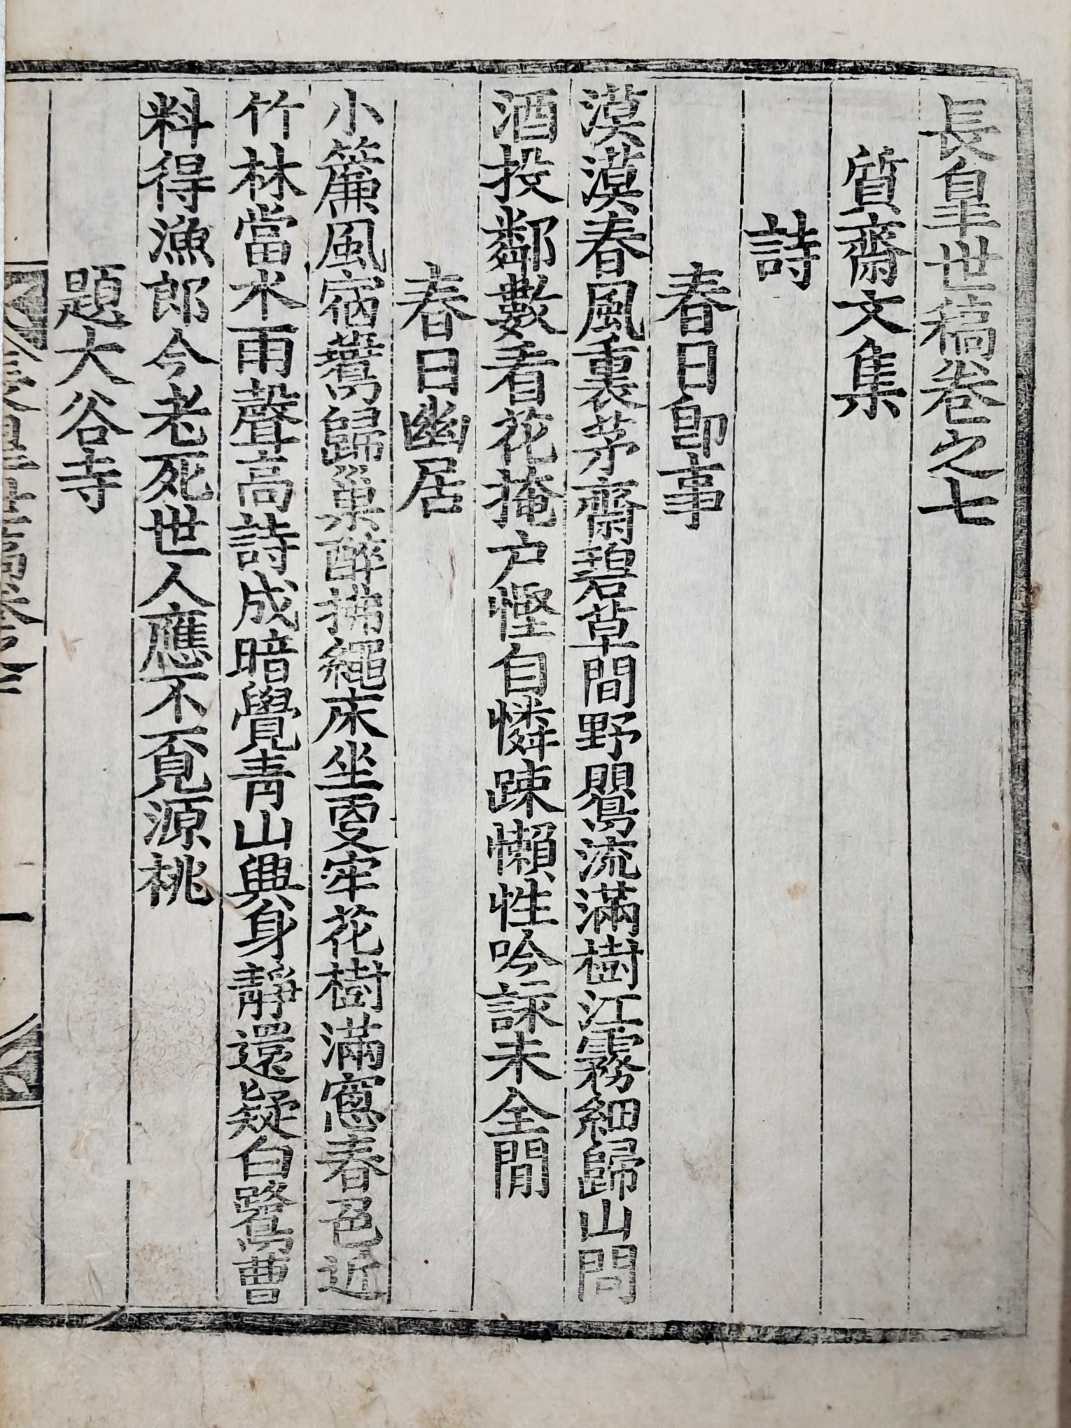 長皐世稿卷之七
質齋文集
詩
春日卽事
漠漠春風重裹茅齋碧草間野鸎流滿樹江霧細歸山問
酒投鄰數看花掩户慳自憐踈懶性吟詠未全閒
春日幽居
小簾風宿鷰歸巢醉拂繩床坐更牢花樹滿窓春邑近
竹林當水雨聲高詩成暗覺靑山興身靜還疑白鷺曹
料得漁郎今老死世人應不覔源桃
題大谷寺
長皐世稿卷之
一